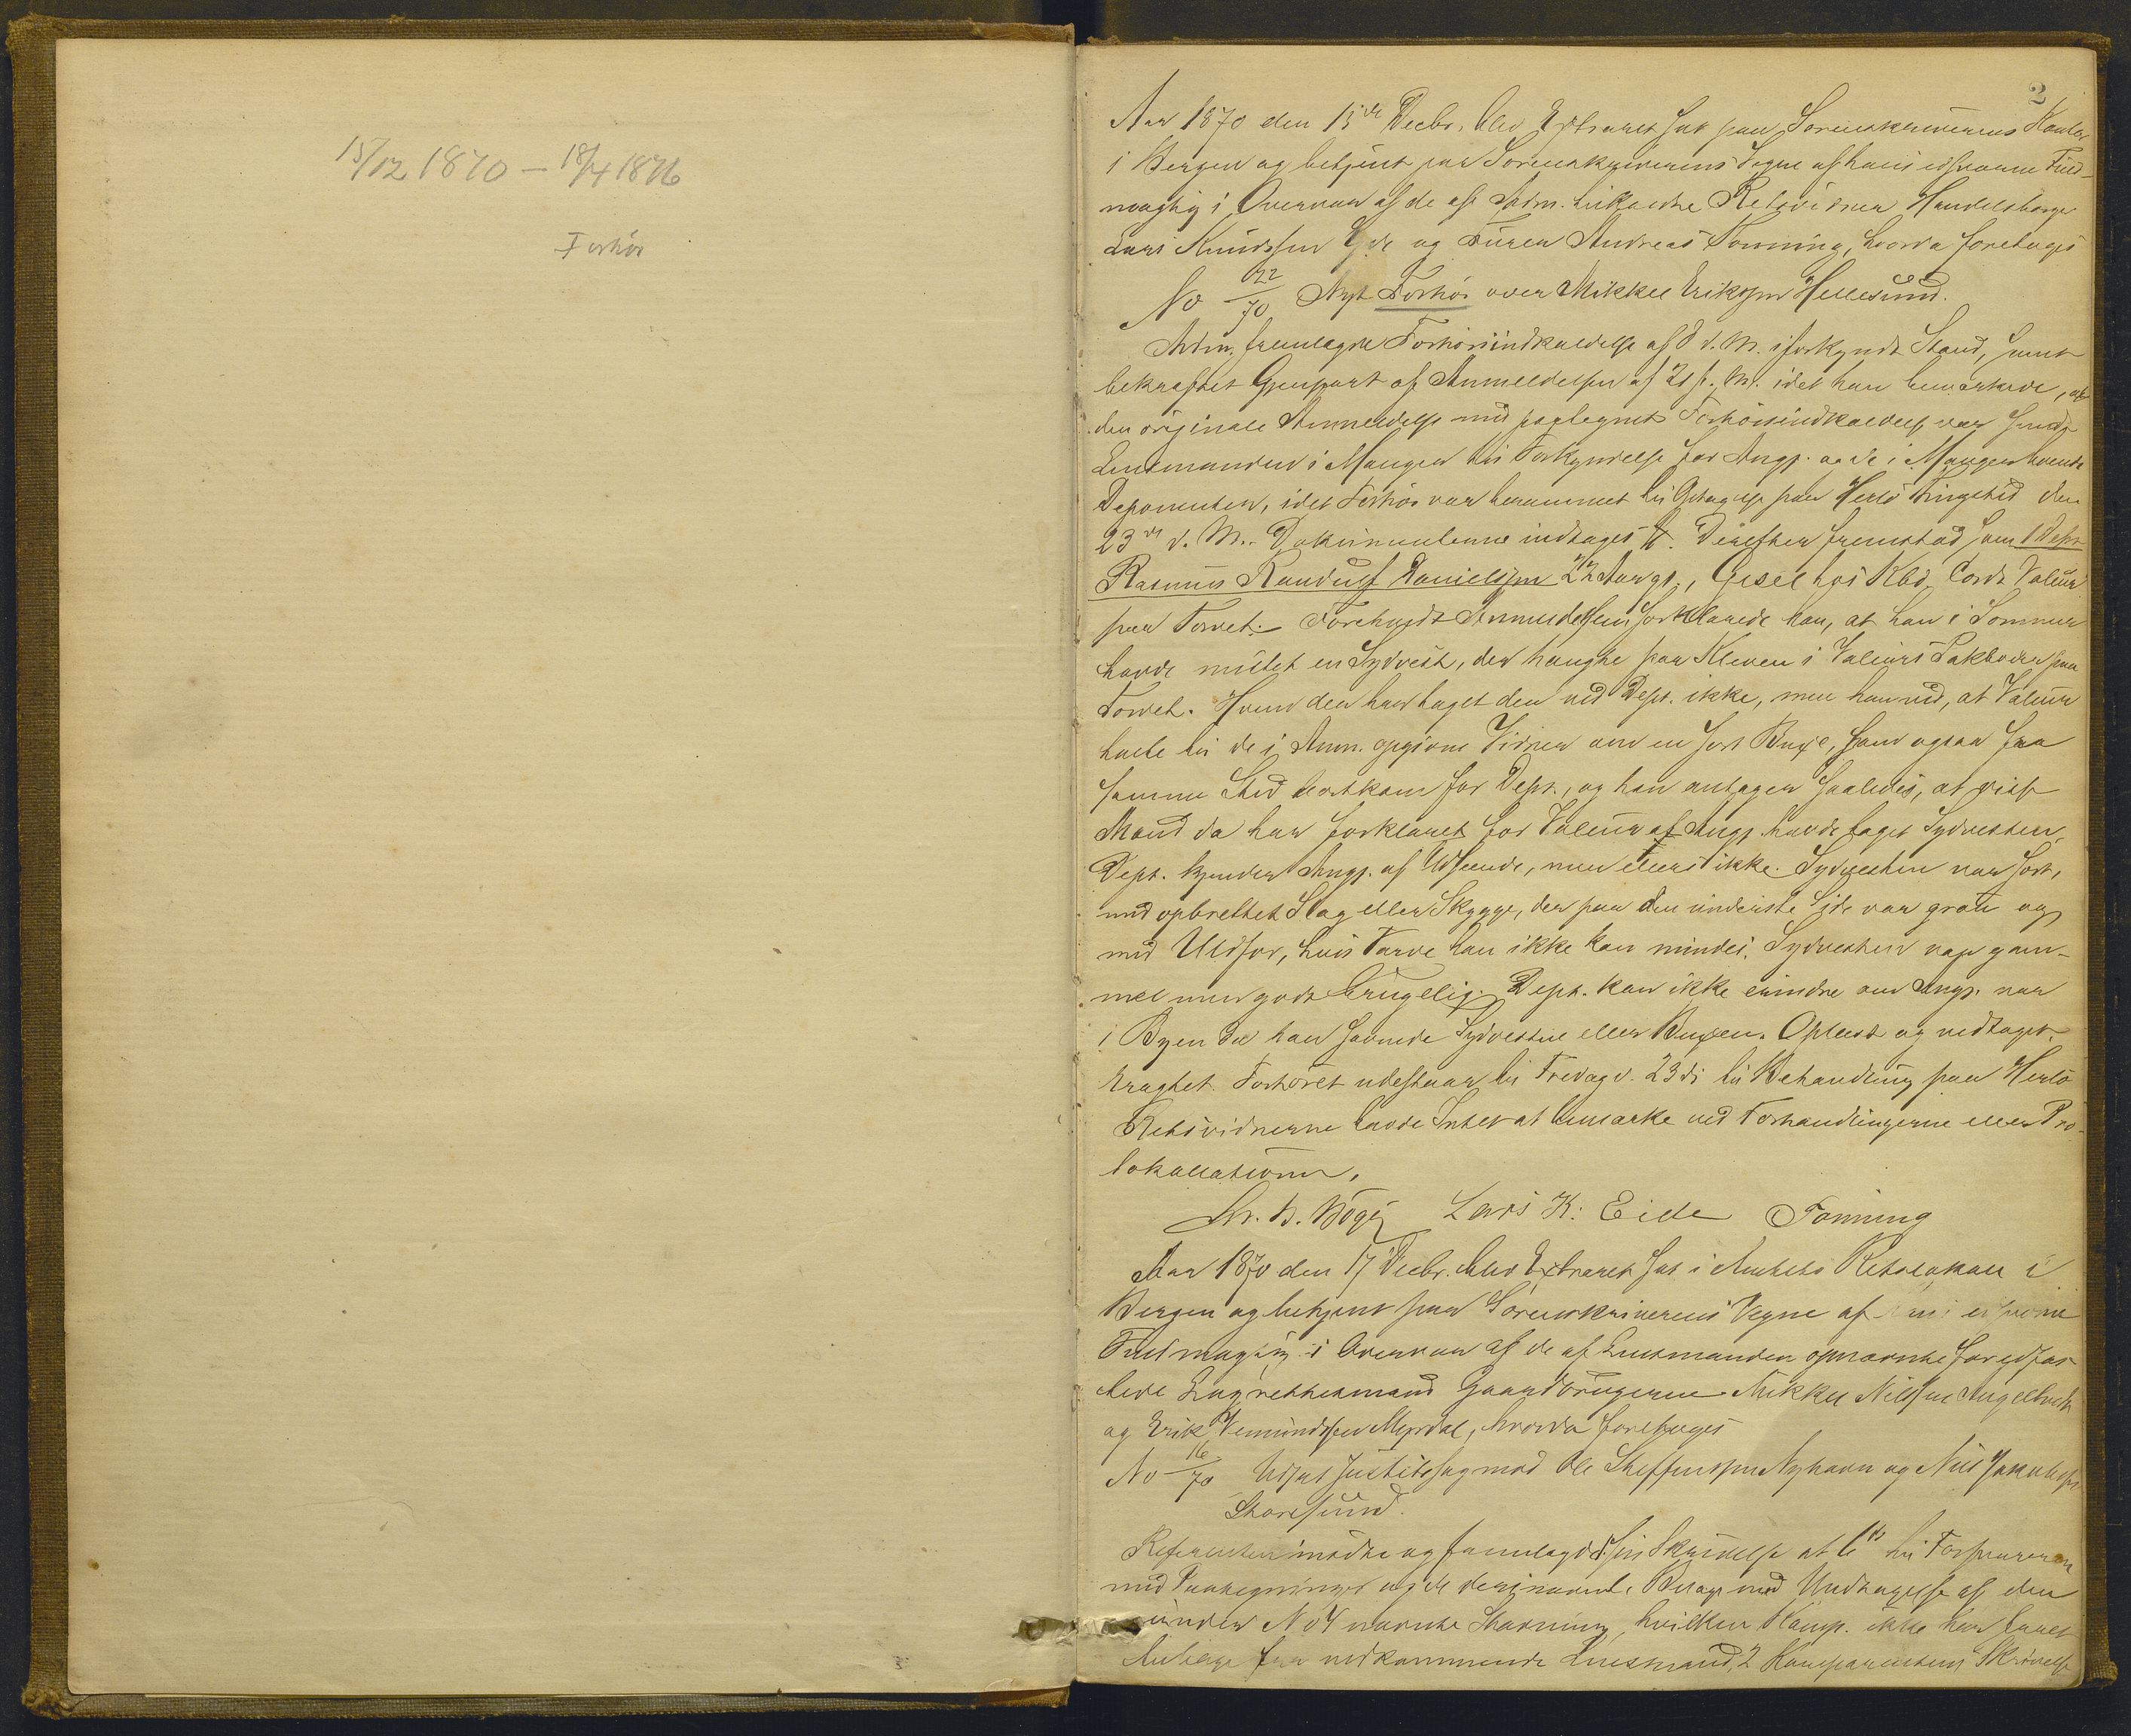 15/12 1870 – 18/4 1876
Forhör
2
Aar 1870 den 15de Decbr. blev Extraret sat paa Sorenskriverens Kontor
i Bergen og betjent paa Sorenskriverens Vegne af hans edsvorne Fuld-
mægtig i Overvær af de af Adm. tilkaldte Retsvidner Handelsborger
Lars Knudssen Eide og Fører Andreas Fonning, hvorda foretoges
No 22/70 Nyt Forhör over Mikkel Eriksen Hellesund.
Adm. fremlagde Forhörsindkaldelse af d. M. i forkyndt Stand, samt
bekræftet Gjenpart af Anmeldelsen af 21 f. M. idet han bemærkede, at
den originale Anmeldelse med paategnet Forhörsindkaldelse var sendt
Lensmanden i Manger til Forkyndelse for Angj. og de i Manger boende
Deponenter, idet Forhör var berammet til Optagelse paa Herlö Thingsted den
23de d. M. Dokumenterne indtages #. Derefter fremstod som 1 Dept.
Rasmus Randulf Danielsen 22 Aar gl., Gesel hos Kbd. Cordt Valeur
paa Torvet. Foreholdt Anmeldelsen forklarede han, at han i Sommer
havde mistet en Sydvest, der hængte paa Kleven i Valeurs Pakbod paa
Torvet. Hvem der har taget den ved Dept. ikke, men han ved, at Valeur
talte til de i Anm. opgivne Vidner om en sort Buxe, som ogsaa fra
samme Sted bortkom for Dept., og han antager saaledes, at disse
Mænd da har forklaret for Valeur at Angj. havde taget Sydvesten.
Dept. kjender Angj. af Udseende, men ellers ikke. Sydvesten var sort,
med opbrettet Slag eller Skygge, der paa den underste Side var grøn og
med Uldfor, hvis Farve han ikke kan mindes. Sydvesten var gam-
mel men godt brugelig. Dept. kan ikke erindre om Angj. var
i Byen da han savnede Sydvesten eller Buxen. Oplæst og vedtaget.
Eragtet. Forhöret udestaar til Fredag d. 23 ds til Behandling paa Herlö
Retsvidnerne havde Intet at bemærke ved Forhandlingerne eller Pro-
tokollationen.
Lars K. Eide Fonning
Aar 1870 den 17 Decbr. blev Extraret sat i Amtets Retslokale i
Bergen og betjent paa Sorenskriverens Vegne af hans edsvorne
Fuldmægtig i Overvær af de af Lensmanden opnævnte foredfæs-
tede Lagrettesmænd Gaardbrugerne Mikkel Nilssen
og Erik Vemundsen Myrdal, hvorda foretoges
No 16/70 Udsat Justitssag mod Ole Steffensen Nyhavn og Nils Jakobsen
Storesund.
Referenten mödte og fremlagde sin Skrivelse af 6te til Forsvareren
med Paategninger og de deri nævnte Bilage med Undtagelse af den
under No 4 nævnte Stævning, hvilken Komp. ikke har faaet
tilbage fra vedkommende Lensmand, 2 Komparentens Skrivelse